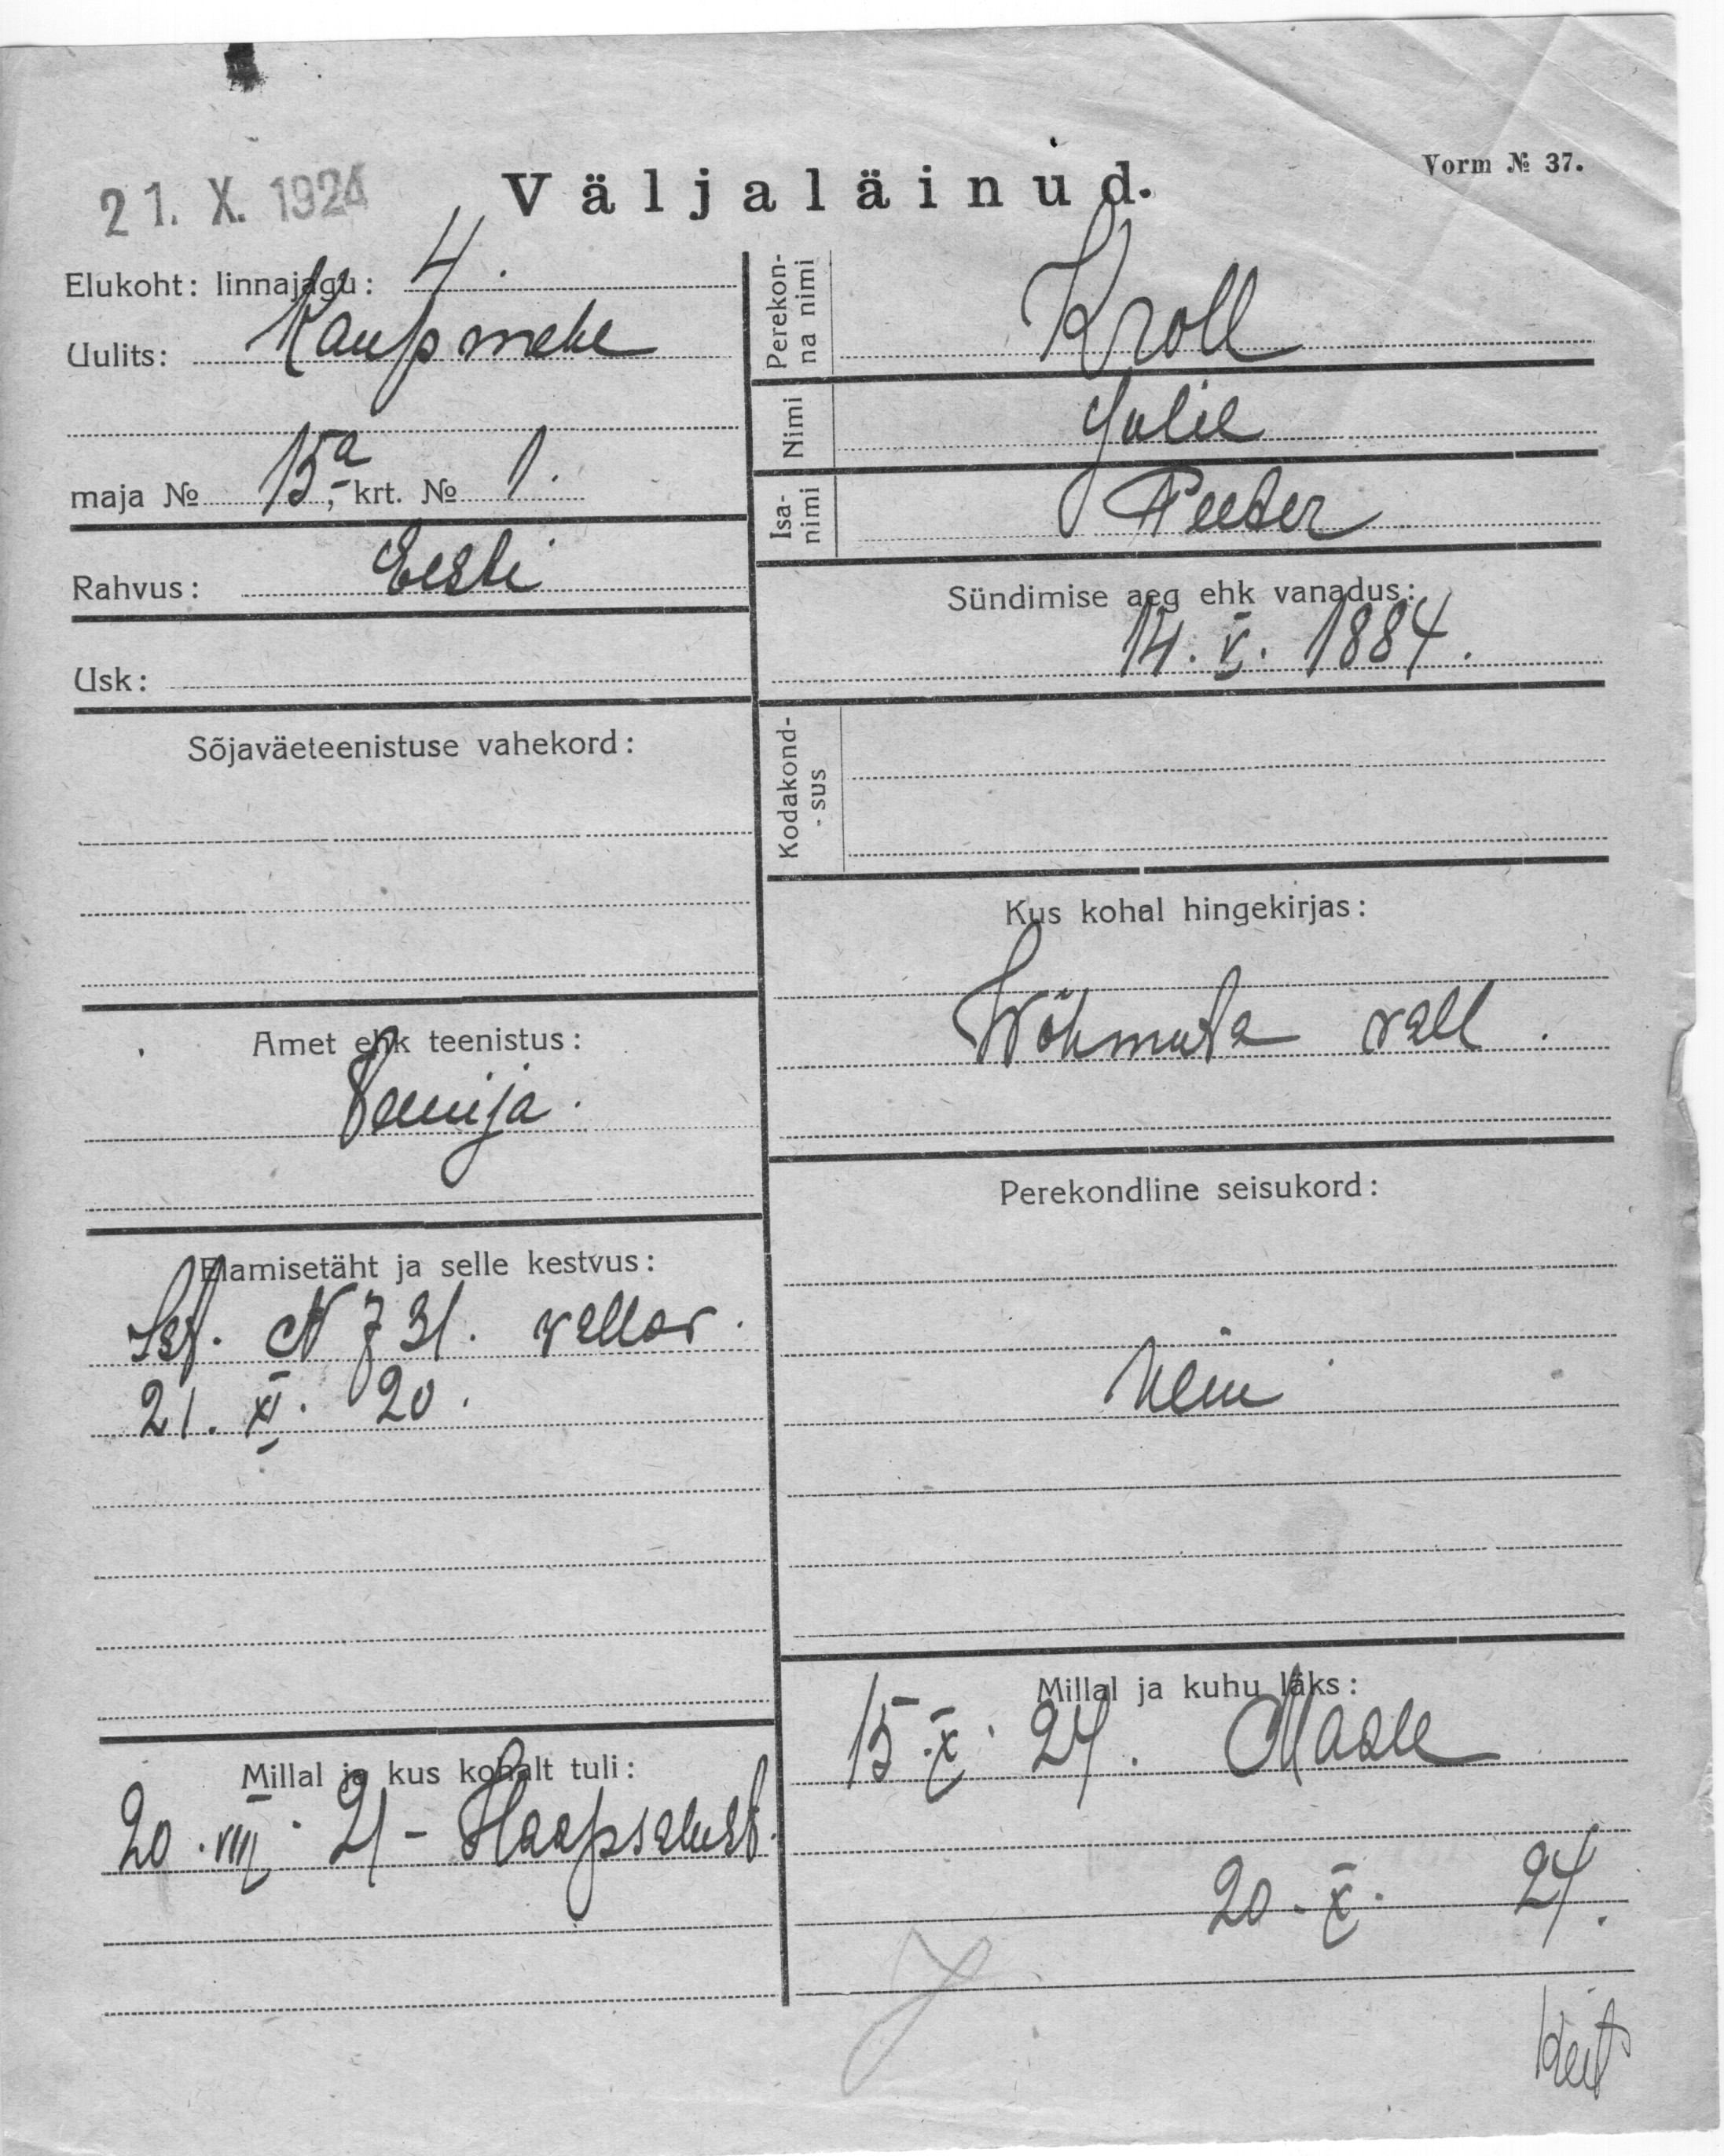 21. X. 1924
Väljaläinud.
Vorm № 37.
Elukoht: linnajagu: 4.
Uulits: Kaupmehe
maja № 15a, krt. № 1.
Rahvus: Eesti
Usk:
Sõjaväeteenistuse vahekord:
Amet ehk teenistus:
Teenija.
Elamisetäht ja selle kestvus:
Ist. № 731. vallav.
21. XI. 20.
Millal ja kus kohalt tuli:
20. VIII. 21 - Haapsalust.
Perekon-
na nimi
Kroll
Nimi
Julie
Isa-
nimi
Peeter
Sündimise aeg ehk vanadus:
14. V. 1884.
Kodakond-
- sus
Kus kohal hingekirjas:
Wõhmuta vall.
Perekondline seisukord:
Millal ja kuhu läks:
15. X. 24. Maale
20. X. 24.